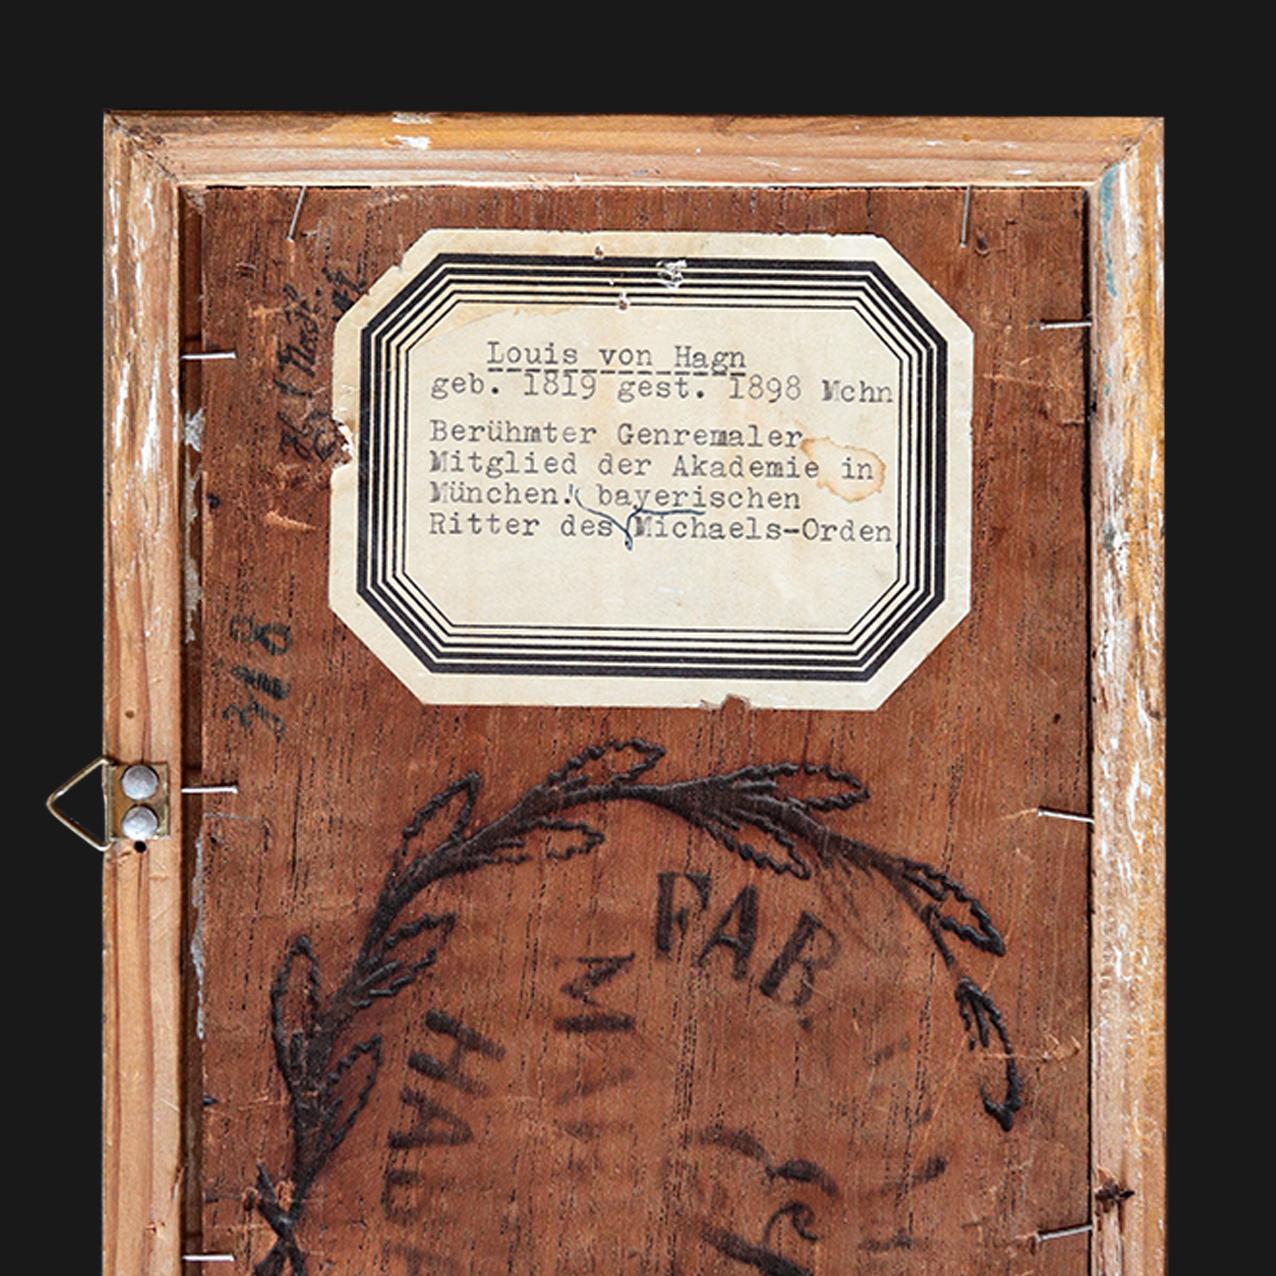 Louis von Hagn
geb. 1819 gest. 1898 Mchn
Berühmter Genremaler
Mitglied der Akademie in
München. bayerischen
Ritter des Michaels-Orden
318
FAB